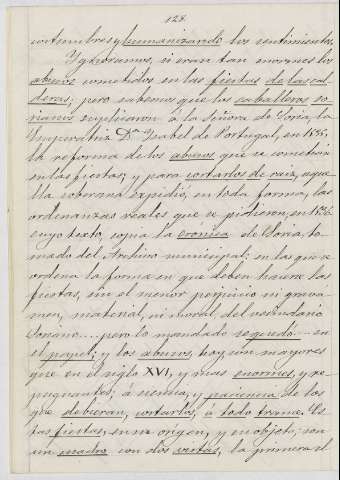 128.
costumbres y humanizando los sentimientos.
Ygnoramos, si eran tan enormes los
abusos cometidos en las fiestas de las cal-
deras; pero sabemos que los caballeros so-
rianos suplicaron á la Señora de Soria, la
Emperatriz D.ª Ysabel de Portugal, en 1535,
la reforma de los abusos que se cometian
en las fiestas; y para cortarlos de raiz, aque-
lla soberana expidió, en toda forma, las
ordenanzas reales que se pidieron, en 1536
cuyo texto, copia la crónica de Soria, to-
mado del Archivo municipal; en las que se
ordena la forma en que deben hacerse las
fiestas, sin el menor perjuicio ni grava-
men, material, ni moral del vecindario
Soriano.... pero lo mandado se quedó.... en
el papel; y los abusos, hoy son mayores
que en el siglo XVI, y mas enormes, y re-
pugnantes; á ciencia, y paciencia de los
que debieran, cortarlos, á todo trance. Es-
tas fiestas, en su origen, y en objeto, son
un madro con dos vistas, la primera el